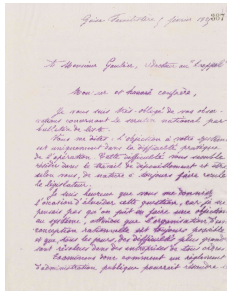 307
A Monsieur Gautier, directeur au "Rappel"
Mon cher et honoré confrère,
Je vous suis très obligé de vos obser-
vations concernant le scrutin national par
bulletin de liste.
Vous me dites : l'objection à votre système
est uniquement dans la difficulté pratique
de l'opération. Cette difficulté vous semble
résider dans le travail de dépouillement et être,
selon vous, de nature à toujours faire reculer
le législateur.
Je suis heureux que vous me donniez
l'occasion d'élucider cette question, car je ne
pensais pas qu'on pût en faire une objection
au système, attendu que l'organisation d'une
conception rationnelle est toujours possible
et que, tous les jours, des difficultés plus grandes
sont résolues dans des entreprises de tous ordres.
Examinons donc comment un règlement
d'administration publique pourrait résoudre